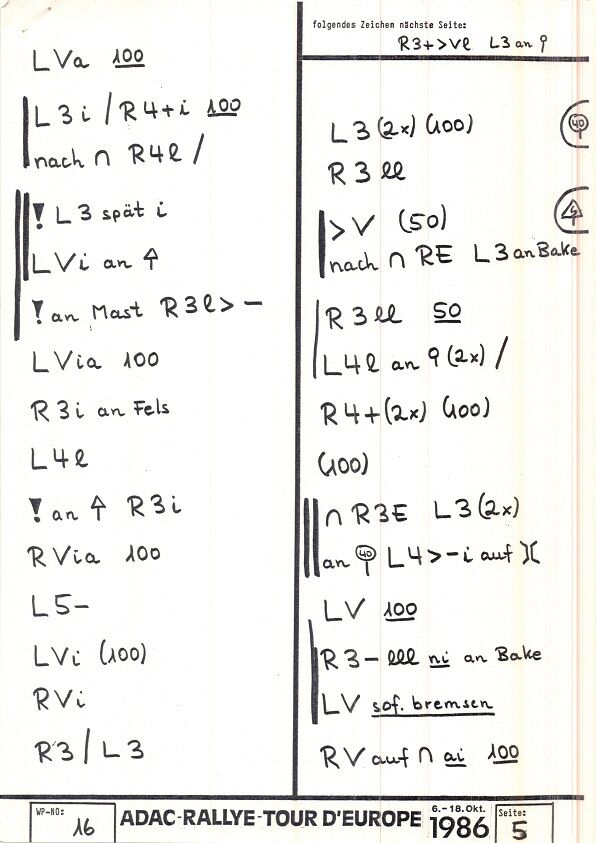 LVa 100
L3i / R4+i 100
nach ∩ R4l /
! L3 spät i
LVi an ↑
! an Mast R3l > –
LVia 100
R3i an Fels
L4l
! an ↑ R3i
RVia 100
L5–
LVi (100)
RVi
R3 / L3
folgendes Zeichen nächste Seite:
R3+>Vl L3 an ϙ
L3 (2x) (100)
40
R3 ll
>V (50)
nach ∩ RE L3 an Bake
R3 ll 50
L4l an ϙ (2x) /
R4+ (2x) (100)
(100)
∩ R3E L3 (2x)
an 40 L4>–i auf )(
LV 100
R3– lll ni an Bake
LV sof. bremsen
RV auf ∩ ai 100
WP-NO: 16
ADAC-RALLYE-TOUR D'EUROPE
6.-18.Okt. 1986
Seite: 5